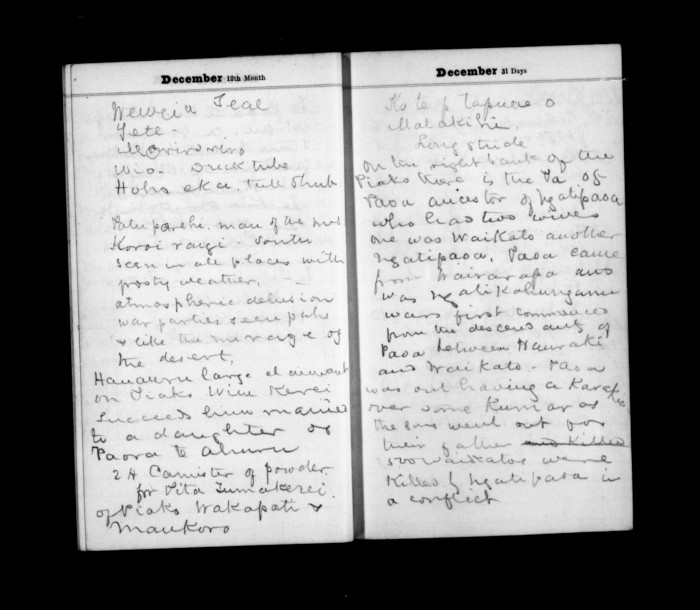 December 12th Month
Teal
Tete -
Wio. Duck tube
Hohs eka. tall Shrub
Patu parehi. man of the mist
Koroi raigi. South
Seen in all places with
frosty weather.
atmospheric delusion
war parties seen pahs
& like the mirage of
the desert.
Hanauru large claimant
on Piako Wini Kerei
Succeeds him married
to a daughter of
Paora Te Ahuru
2 H Canister of powder
for Pita Tumakerei.
of Piako Wakapati &
Maukoro
December 31 Days
Ko te p tapuae o
Matakihi.
Long stride
On the right bank of the
Piako there is the Pa of
Paoa ancestor of Ngatipaoa
who has two wives
one was Waikato another
Ngatipaoa. Paoa came
from Wairarapa and
was Ngatikahungunu
wars first commenced
from the descendants of
Paoa between Hauraki
and Waikato - Paoa
was out having a Karakia
over some Kumaras
the sons went out for
their father and killed
500 Waikatos were
Killed by Ngatipaoa in
a conflict